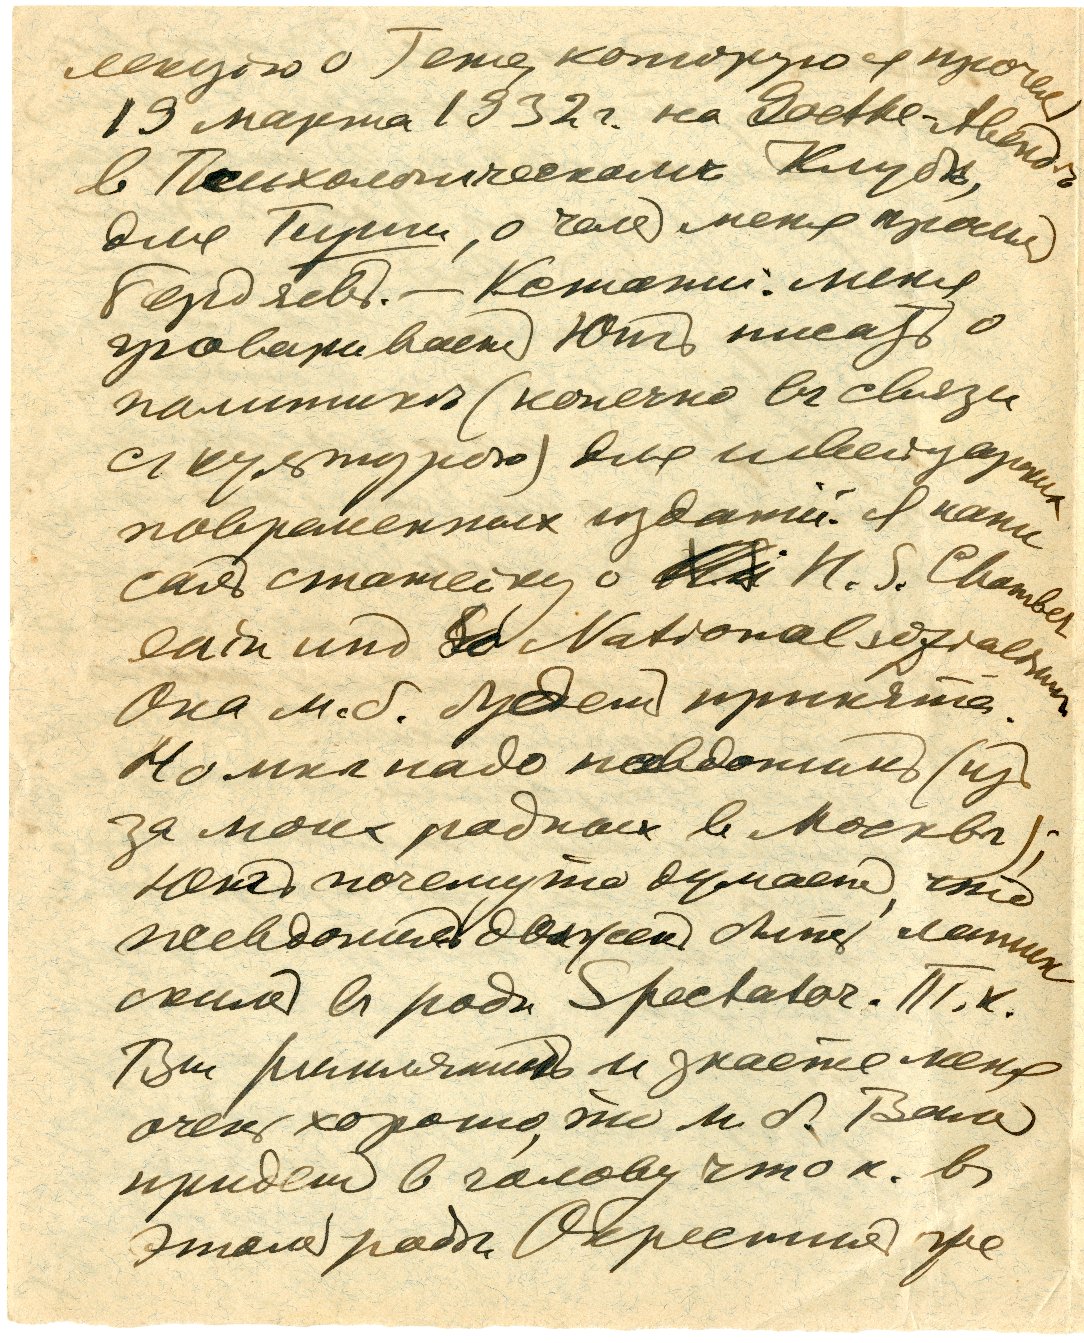 лекцію о Гете, которую я прочел
19 марта 1932 г. на Goethe-Abend'ѣ
в Психологическомъ Клубѣ,
для Пути, о чем меня просил
Бердяевъ. — Кстати: меня
уговаривает Юнгъ писать о
политикѣ (конечно въ связи
съ культурою) для швейцарских
повременных изданій. Я напи
салъ статейку о H. S. Chamber
lain und Nationalsozialismus
Она м. б. будет принята.
Но мнѣ надо псевдонимъ (изъ
за моих родных в Москвѣ);
Юнгъ почему то думает, что
псевдоним должен быть латин
ским въ родѣ Spectator. Т. к.
Вы римлянинъ и знаете меня
очень хорошо, то м. б. Вам
придет в голову что н. въ
этом родѣ. Окрестите же